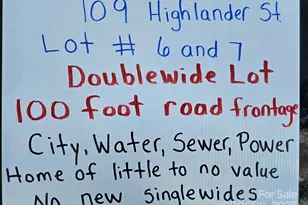 109 Highlander St.
Lot # 6 and 7
Doublewide Lot
100 foot road frontage
City, Water, Sewer, Power
Home of little to no value
No new singlewides
For Sale